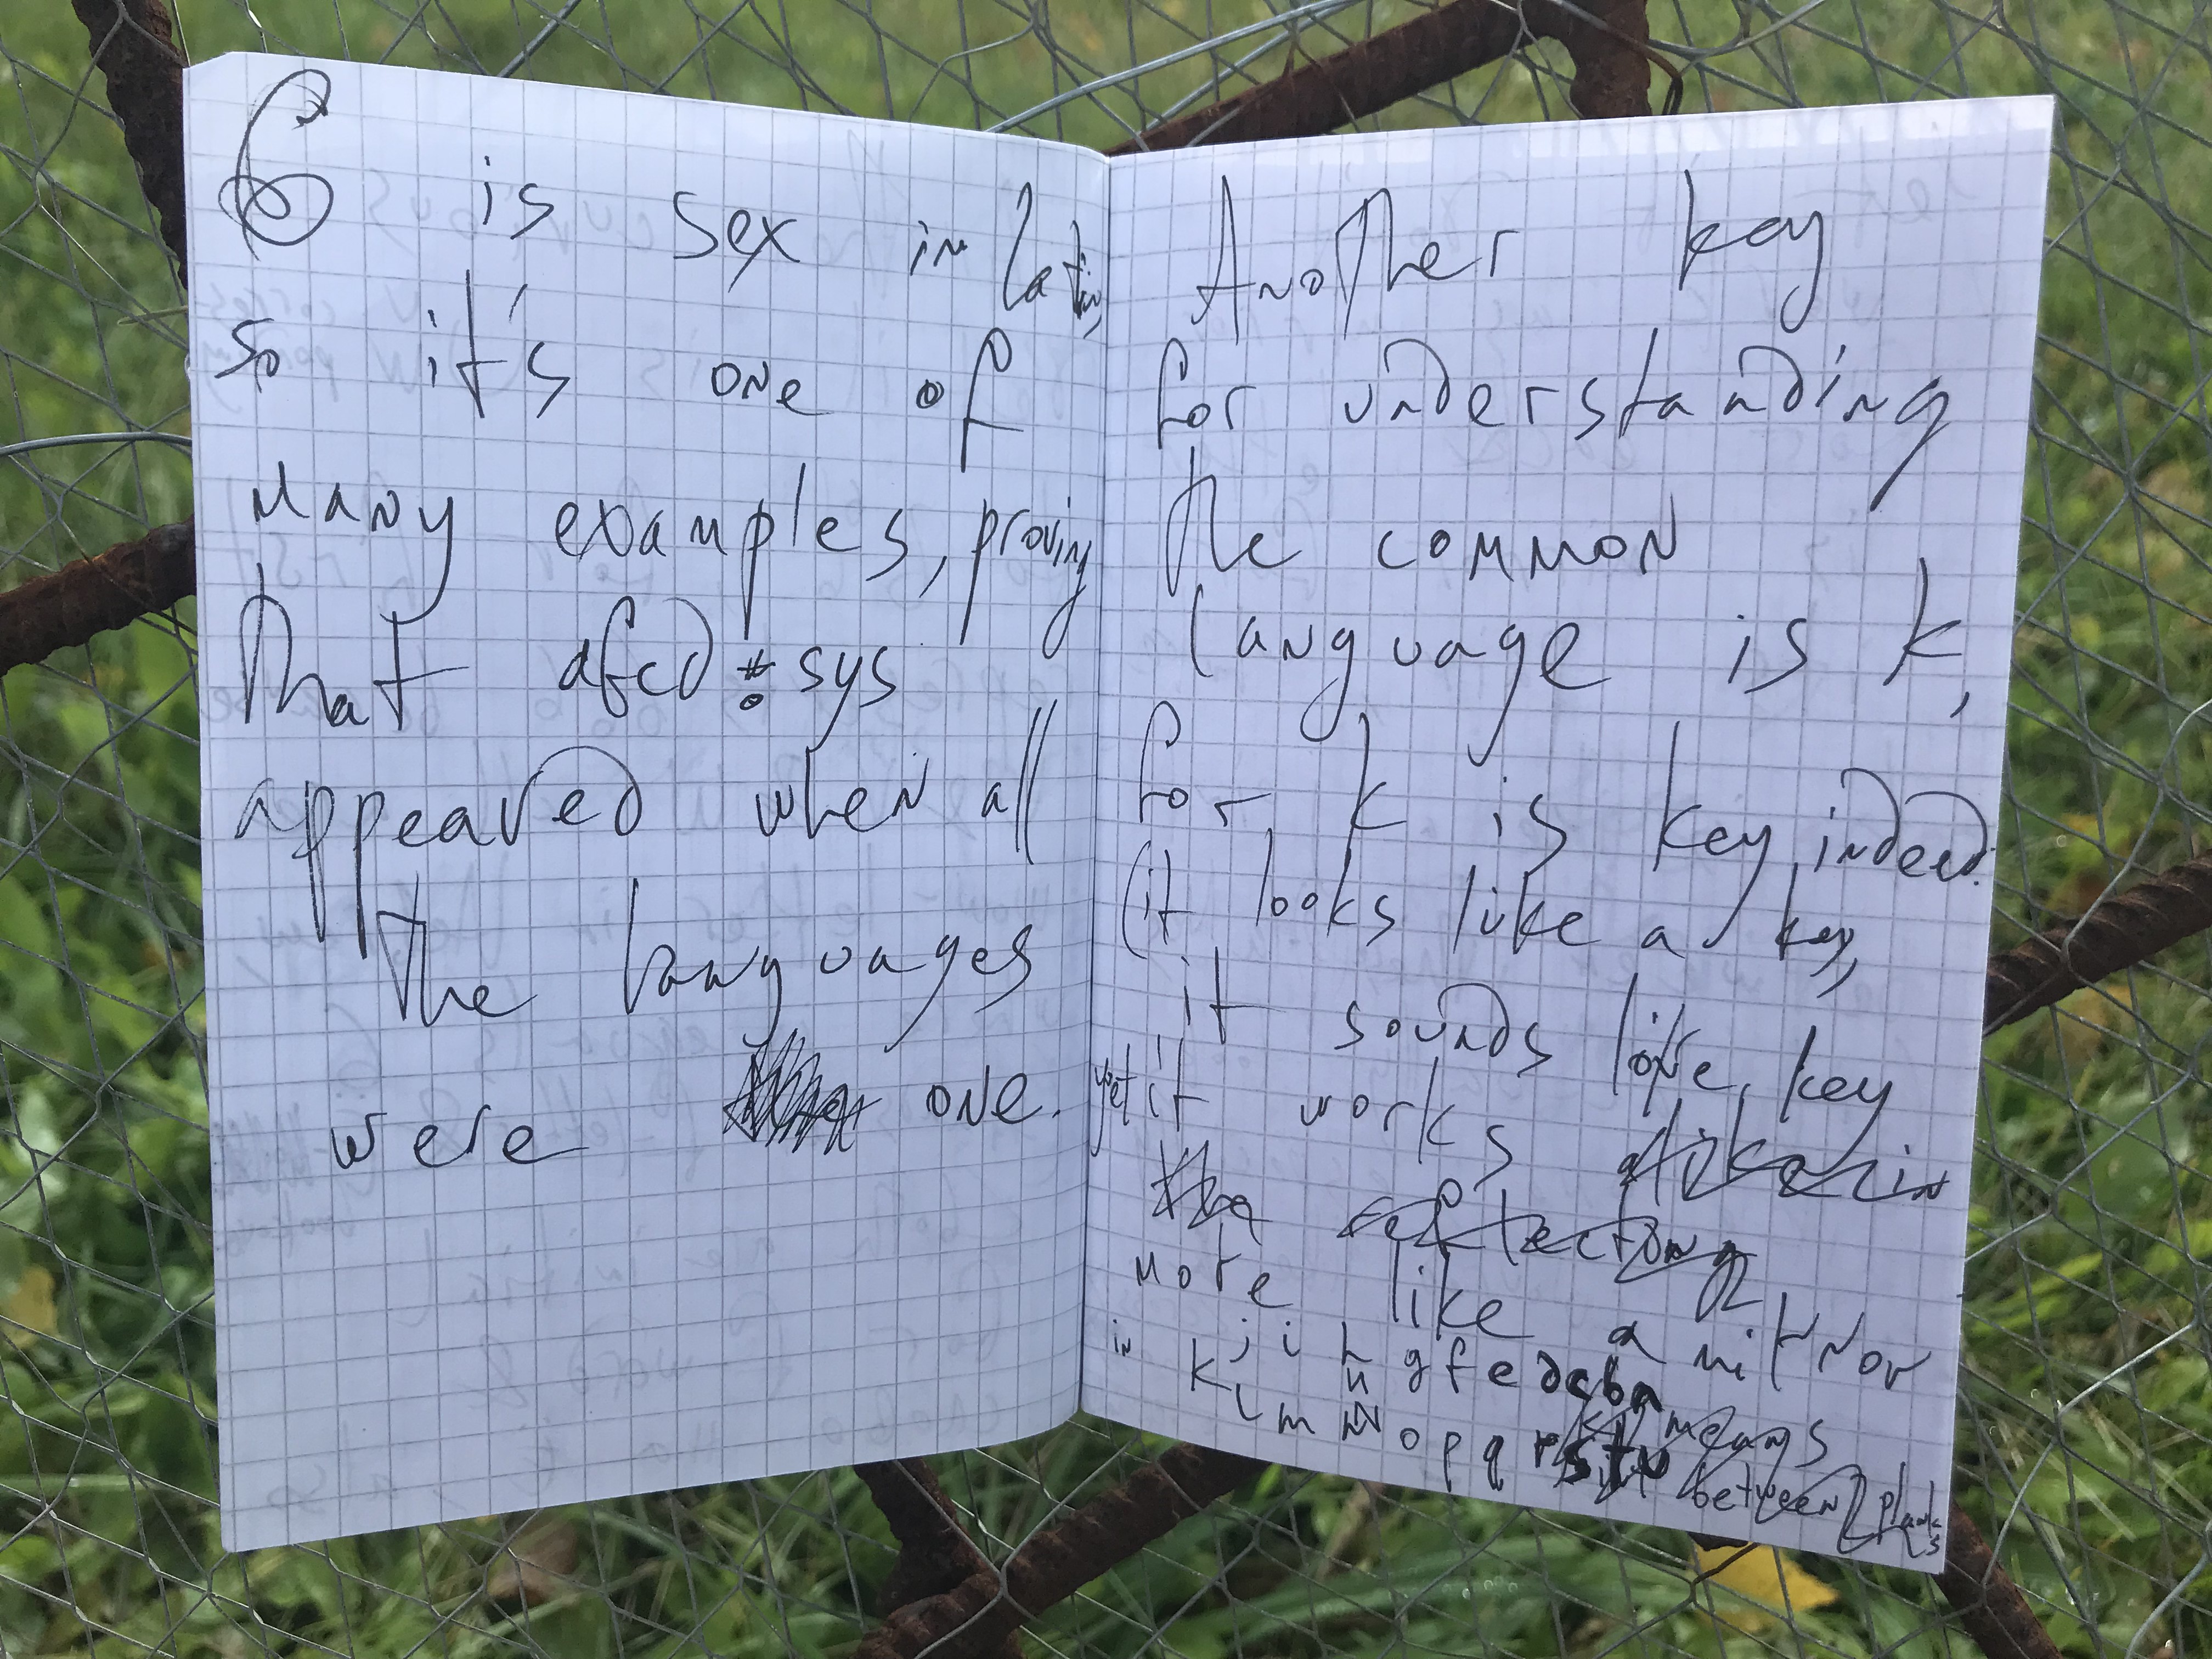 6 is sex in latin,
so it's one of
many examples, proving
that abcd : sys
appeared when all
the languages
were one.
Another key
for understanding
the common
language is k,
for k is key indeed.
(it looks like a key,
it sounds like key
yet it works
more like a mirror
in k j i h g f e d c b a
l m n o p q r s t u
means
between 2 planks